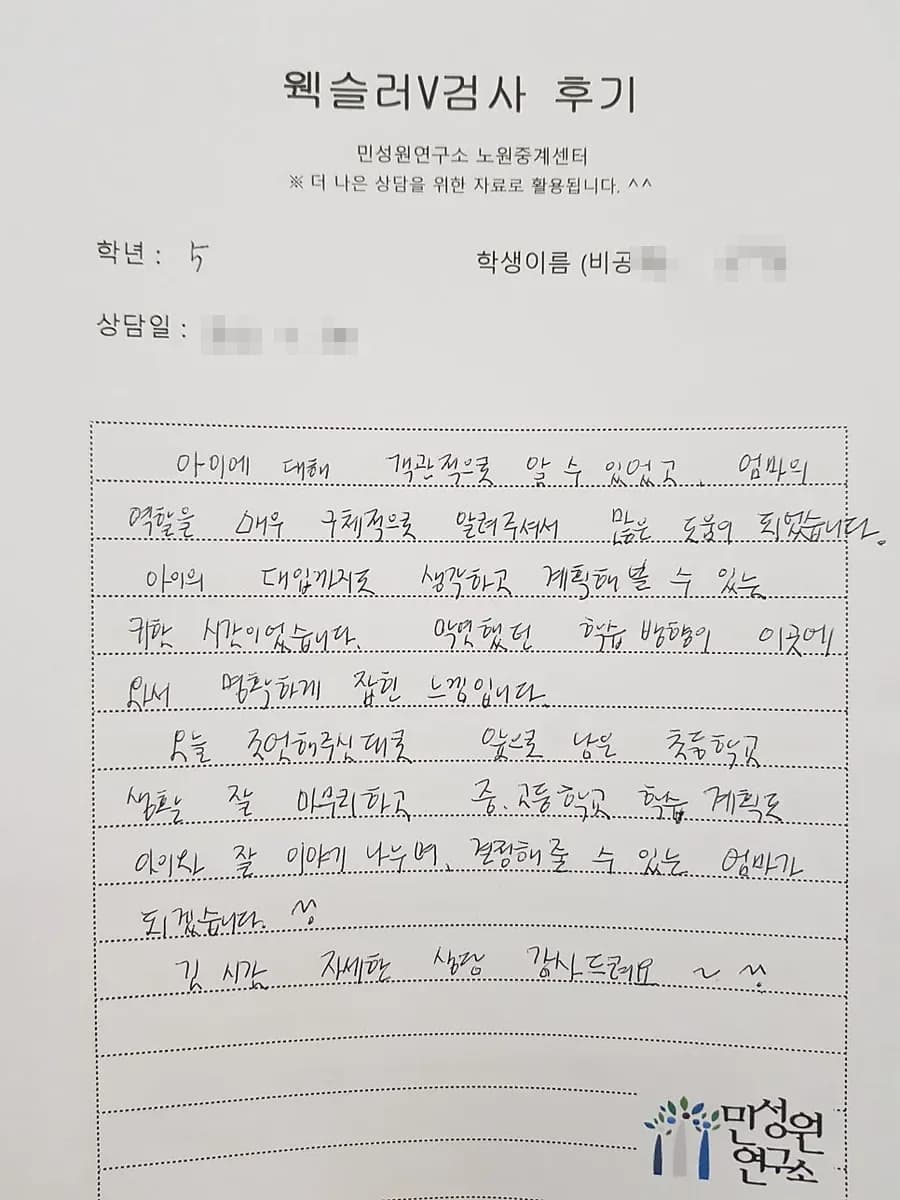 웩슬러V검사 후기
민성원연구소 노원중계센터
※ 더 나은 상담을 위한 자료로 활용됩니다. ^^
학년 : 5
학생이름 (비공
상담일 :
아이에 대해 객관적으로 알 수 있었고, 엄마의
역할을 매우 구체적으로 알려주셔서 많은 도움이 되었습니다.
아이의 대입까지도 생각하고 계획해 볼 수 있는
귀한 시간이었습니다. 막연했던 학습 방향이 이곳에
와서 명확하게 잡힌 느낌입니다.
오늘 조언해주신대로 앞으로 남은 초등학교
생활 잘 마무리하고 중.고등학교 학습 계획도
아이와 잘 이야기 나누며, 결정해 줄 수 있는 엄마가
되겠습니다. ^^
긴 시간 자세한 상담 감사드려요 ~ ^^
민성원
연구소